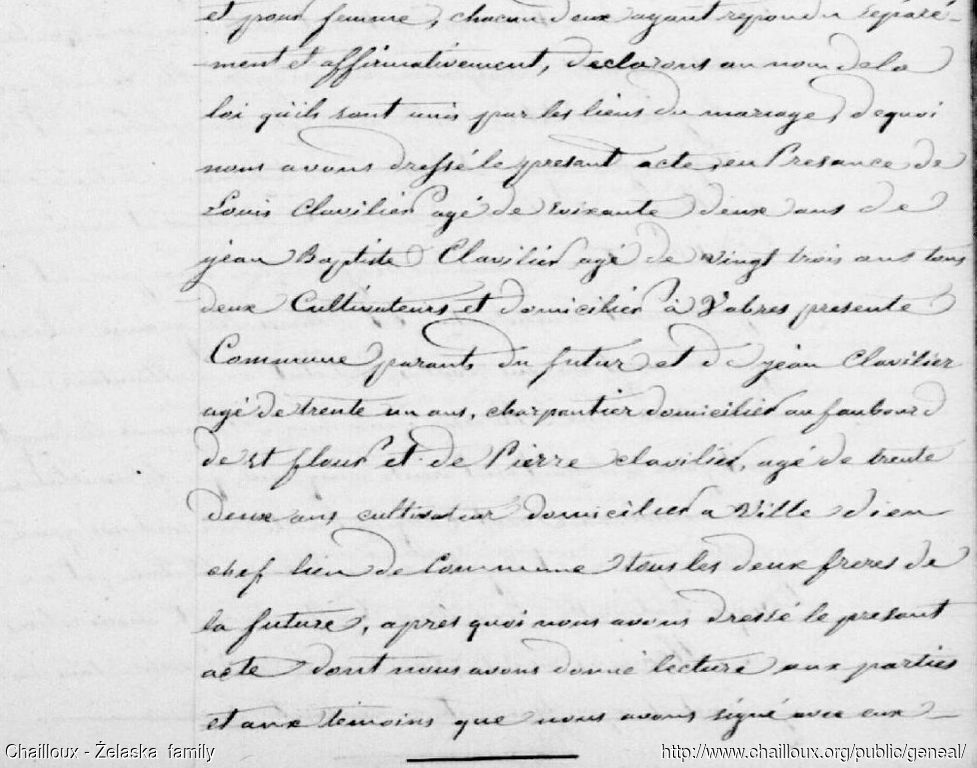 et pour femme, chacun deux ayant repondu séparé-
ment et affirmativement, declarons au nom dela
loi qu'ils sont unis par les liens du mariage, dequoi
nous avons dressé le presant acte, en Presance de
Louis Clavilier agé de soixante deux ans de
jean Baptiste Clavilier agé de vingt trois ans tous
deux Cultivateurs et domicilier à Vabres presente
Commune parants du futur et de jean Clavilier
agé de trente un ans, charpantier domicilier au faubourd
de st flour et de Pierre clavilier, agé de trente
deux ans cultivateur domicilier a Ville dieu
chef lieu de Commune tous les deux freres de
la future, apres quoi nous avons dressé le presant
acte dont nous avons donné lecture aux parties
et aux temoins que nous avons signé avec eux -
Chailloux - Żelaska family
http://www.chailloux.org/public/geneal/